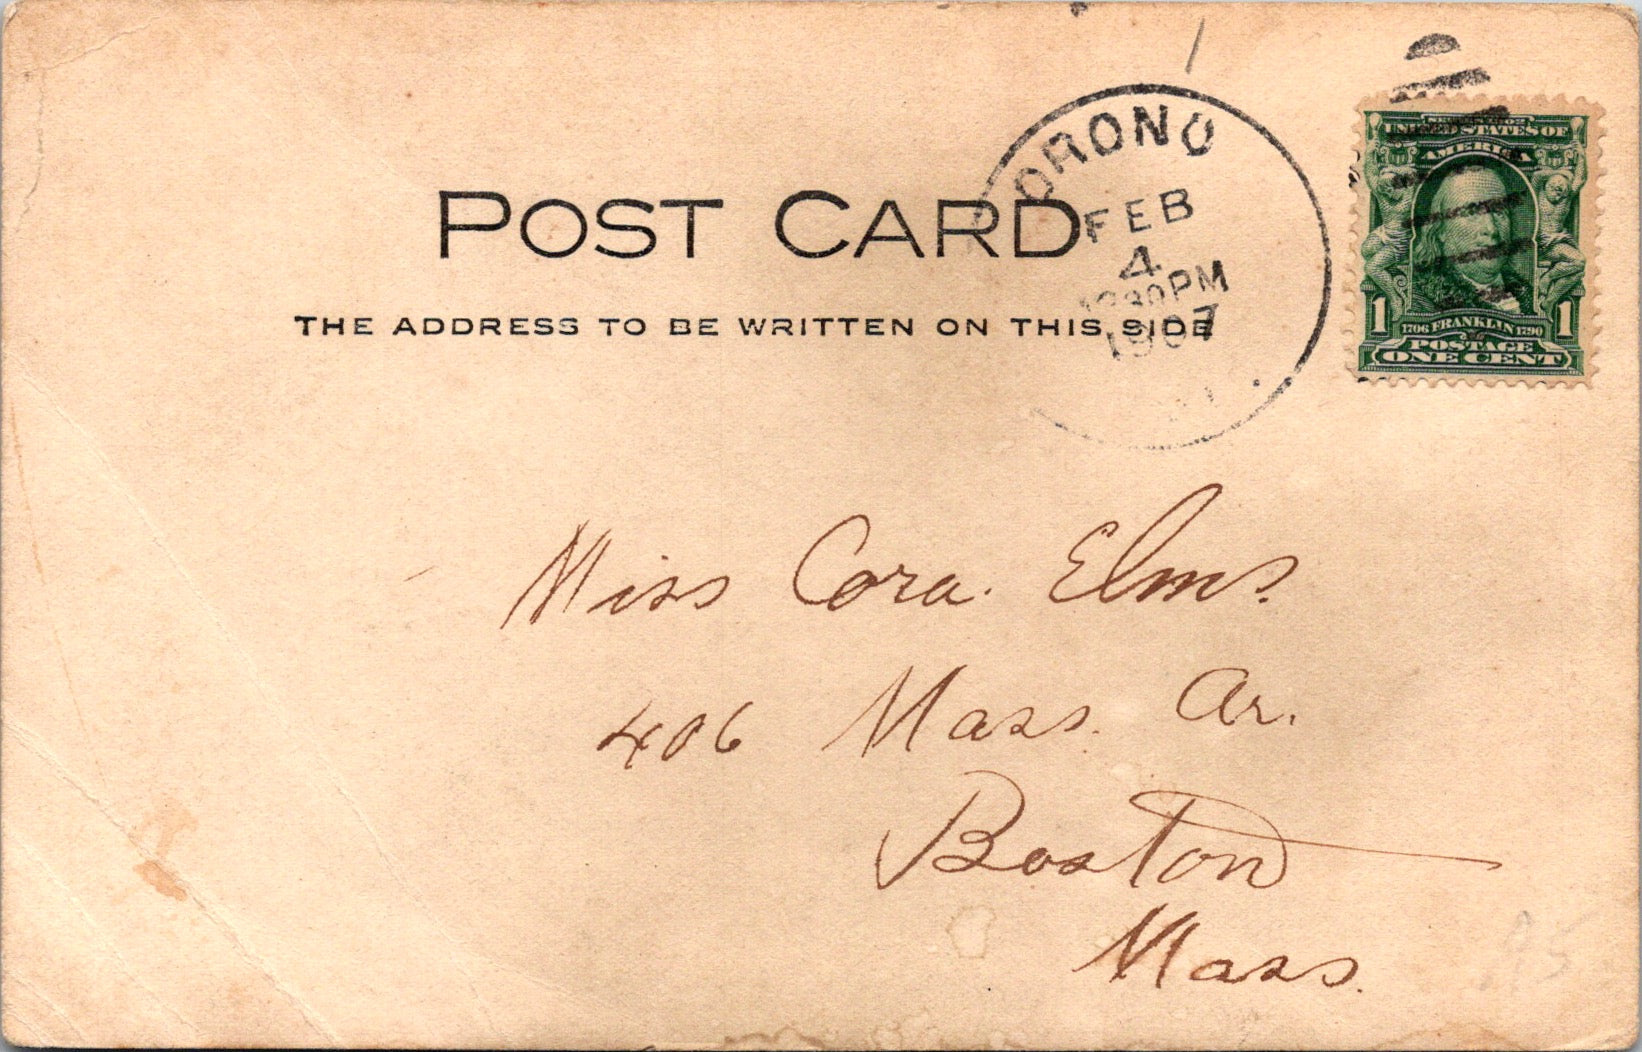 POST CARD
THE ADDRESS TO BE WRITTEN ON THIS SIDE
ORONO
FEB
4
PM
1907
SERIES 1902
UNITED STATES OF
AMERICA
1 1706 FRANKLIN 1790 1
POSTAGE
ONE CENT
Miss Cora. Elms.
406 Mass. Av.
Boston
Mass.